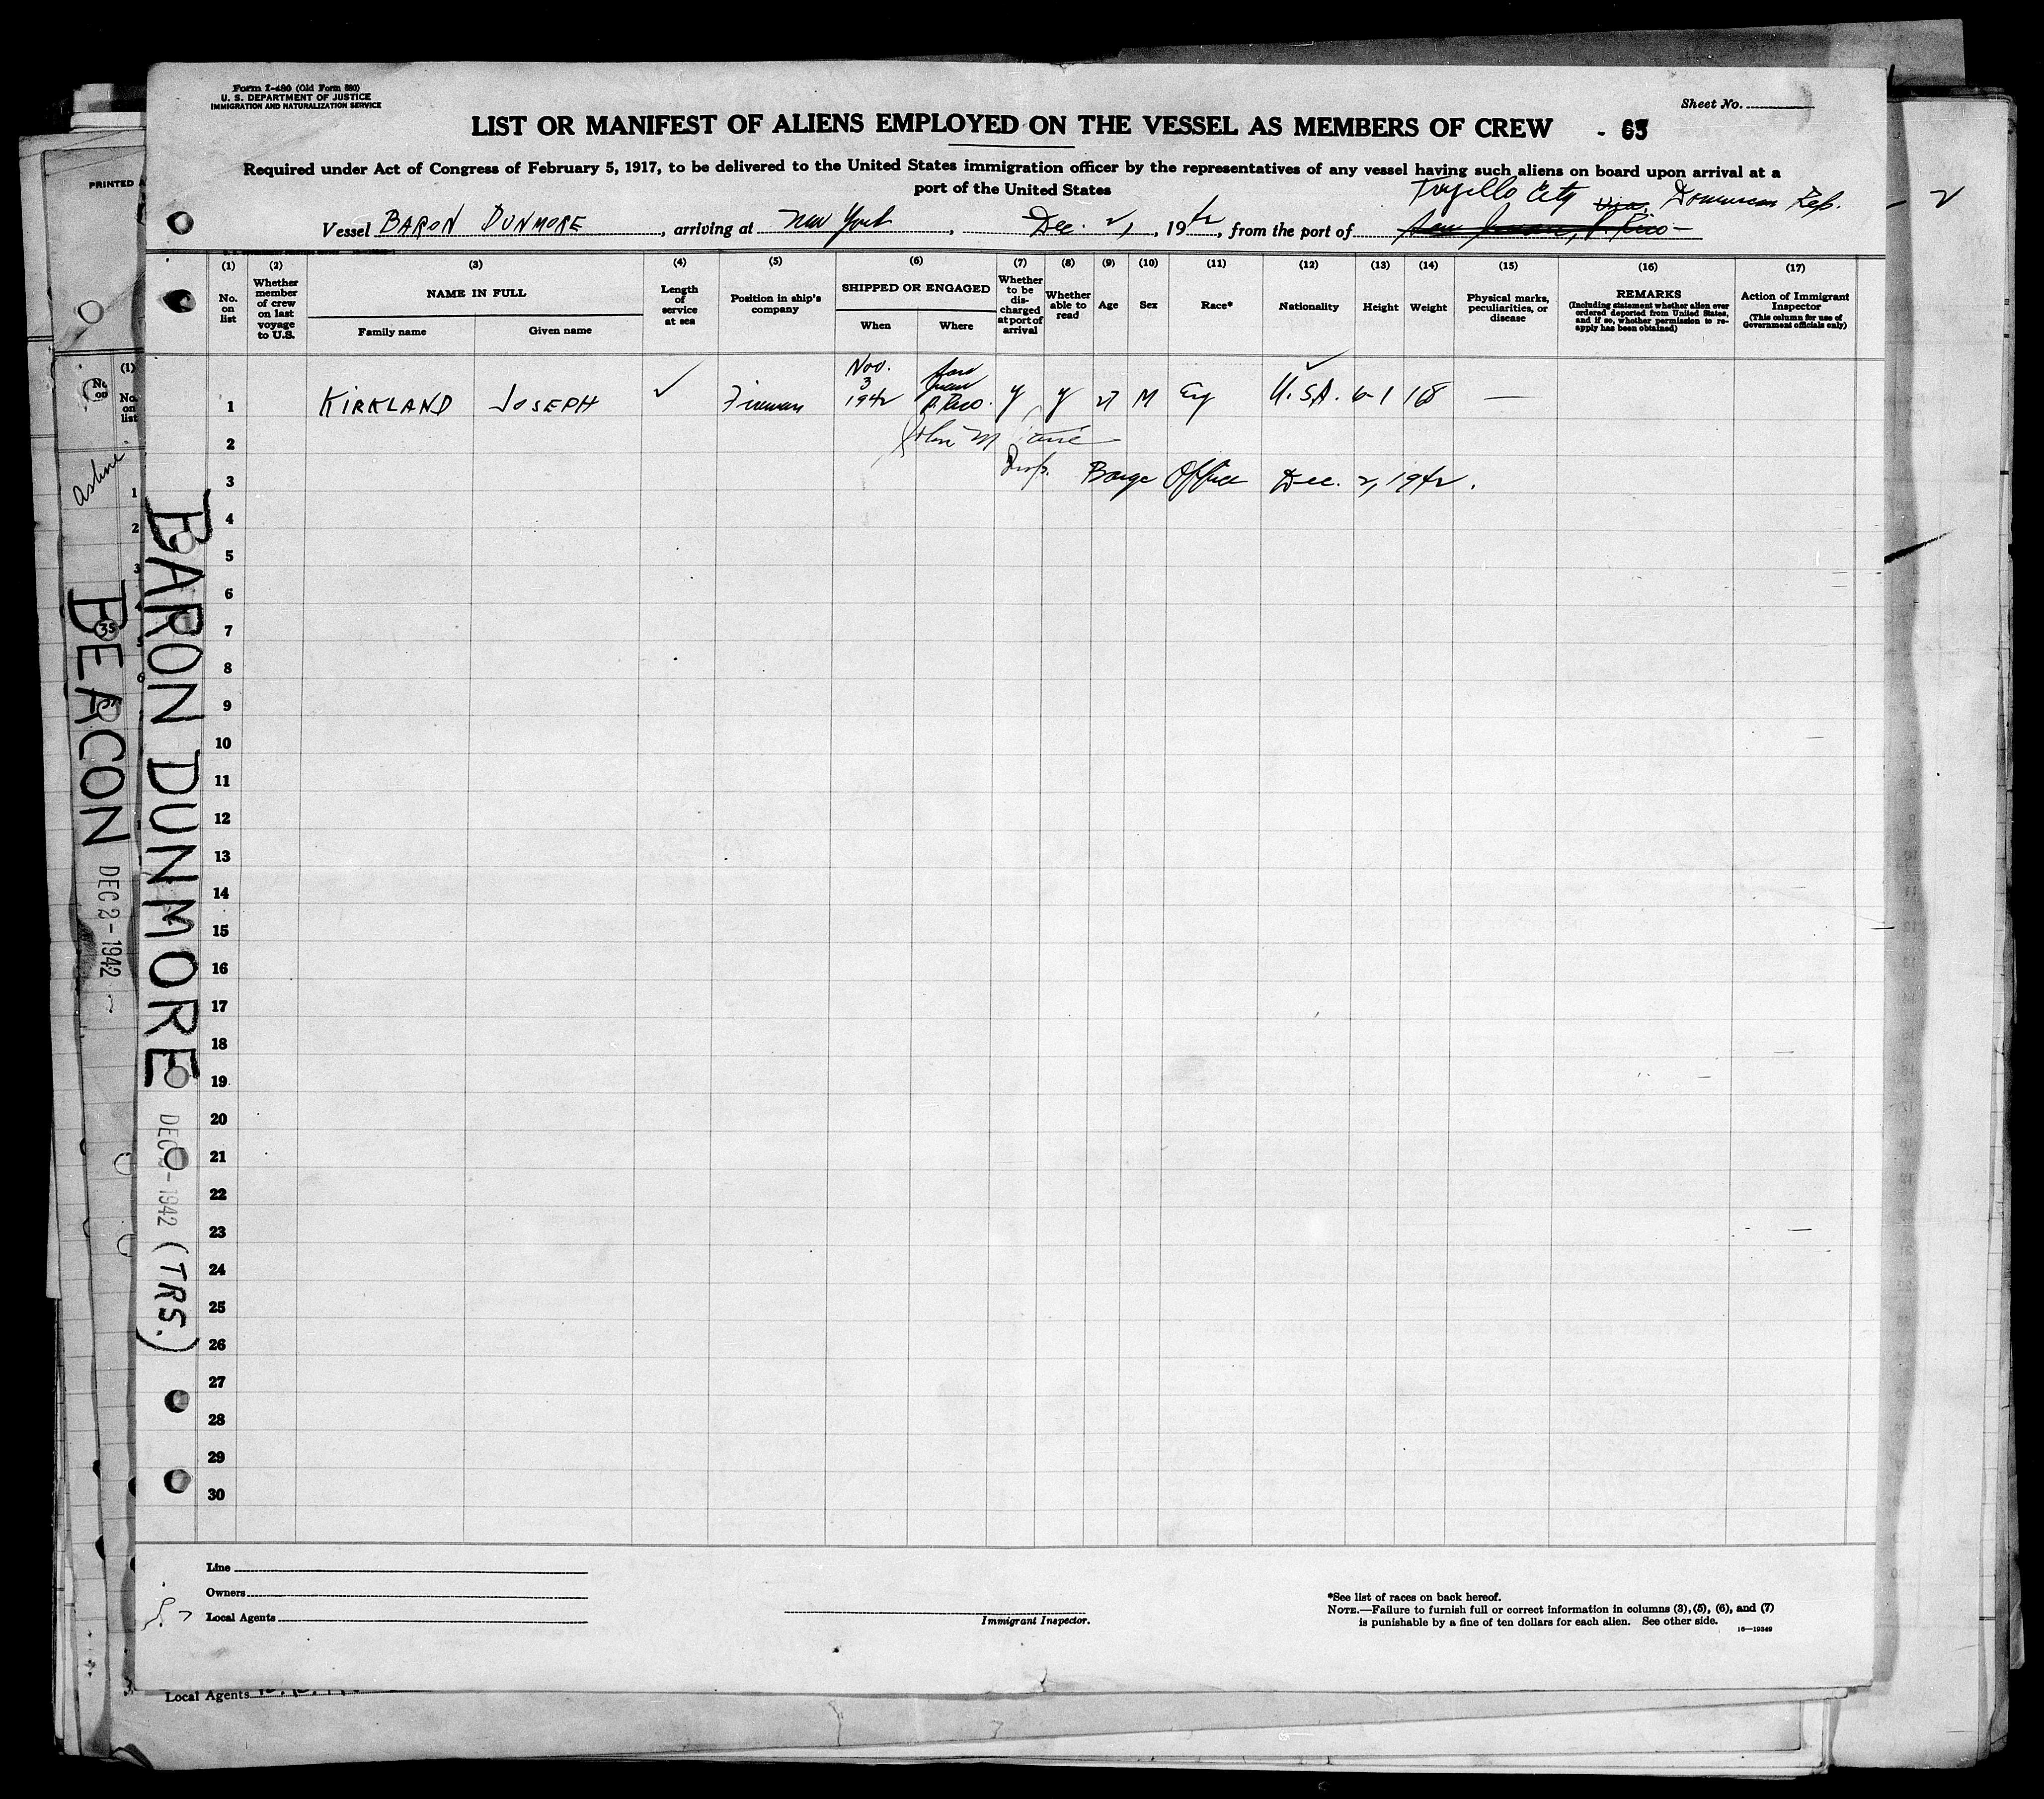 Form I-480 (Old Form 680)
U. S. DEPARTMENT OF JUSTICE
IMMIGRATION AND NATURALIZATION SERVICE
Sheet No.
LIST OR MANIFEST OF ALIENS EMPLOYED ON THE VESSEL AS MEMBERS OF CREW
Required under Act of Congress of February 5, 1917, to be delivered to the United States immigration officer by the representatives of any vessel having such aliens on board upon arrival at a
port of the United States
Trujillo City Dominican Rep.
Vessel BARON DUNMORE, arriving at New York, Dec. 2, 1942, from the port of
(1) (2) (3) (4) (5) (6) (7) (8) (9) (10) (11) (12) (13) (14) (15) (16) (17)
No. on list
Whether member of crew on last voyage to U.S.
NAME IN FULL
Family name
Given name
Length of service at sea
Position in ship's company
SHIPPED OR ENGAGED
When
Where
Whether to be discharged at port of arrival
Whether able to read
Age
Sex
Race*
Nationality
Height
Weight
Physical marks, peculiarities, or disease
REMARKS
(Including statement whether alien ever ordered deported from United States, and if so, whether permission to reapply has been obtained)
Action of Immigrant Inspector
(This column for use of Government officials only)
1 KIRKLAND JOSEPH Fireman Nov. 3 1942 San Juan P. Rico. y y 27 M U.S.A. 6-1 168 —
2 John M
3 Insp. Barge Office Dec. 2, 1942.
4
5
6
7
8
9
10
11
12
13
14
15
16
17
18
19
20
21
22
23
24
25
26
27
28
29
30
BARON DUNMORE DEC - 1942 (TRS.)
BEACON DEC 2 - 1942
35
PRINTED
(1)
No. on list
Line
Owners
Local Agents
Immigrant Inspector.
*See list of races on back hereof.
NOTE.—Failure to furnish full or correct information in columns (3), (5), (6), and (7)
is punishable by a fine of ten dollars for each alien. See other side.
16—19349
Local Agents